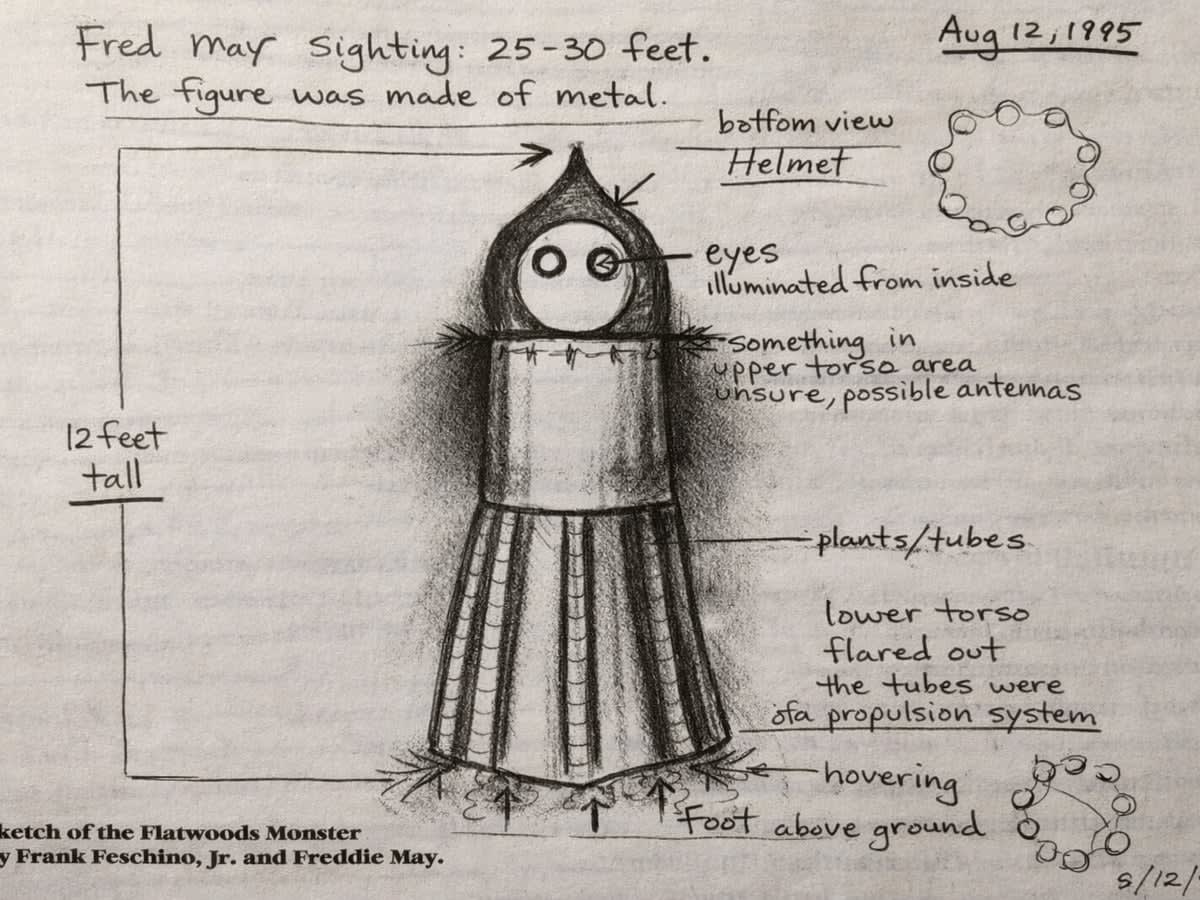 Fred May Sighting: 25-30 feet.
The figure was made of metal.
Aug 12, 1995
bottom view
Helmet
eyes
illuminated from inside
something in
upper torso area
unsure, possible antennas
12 feet
tall
plants/tubes
lower torso
flared out
the tubes were
of a propulsion system
hovering
Foot above ground
ketch of the Flatwoods Monster
y Frank Feschino, Jr. and Freddie May.
8/12/